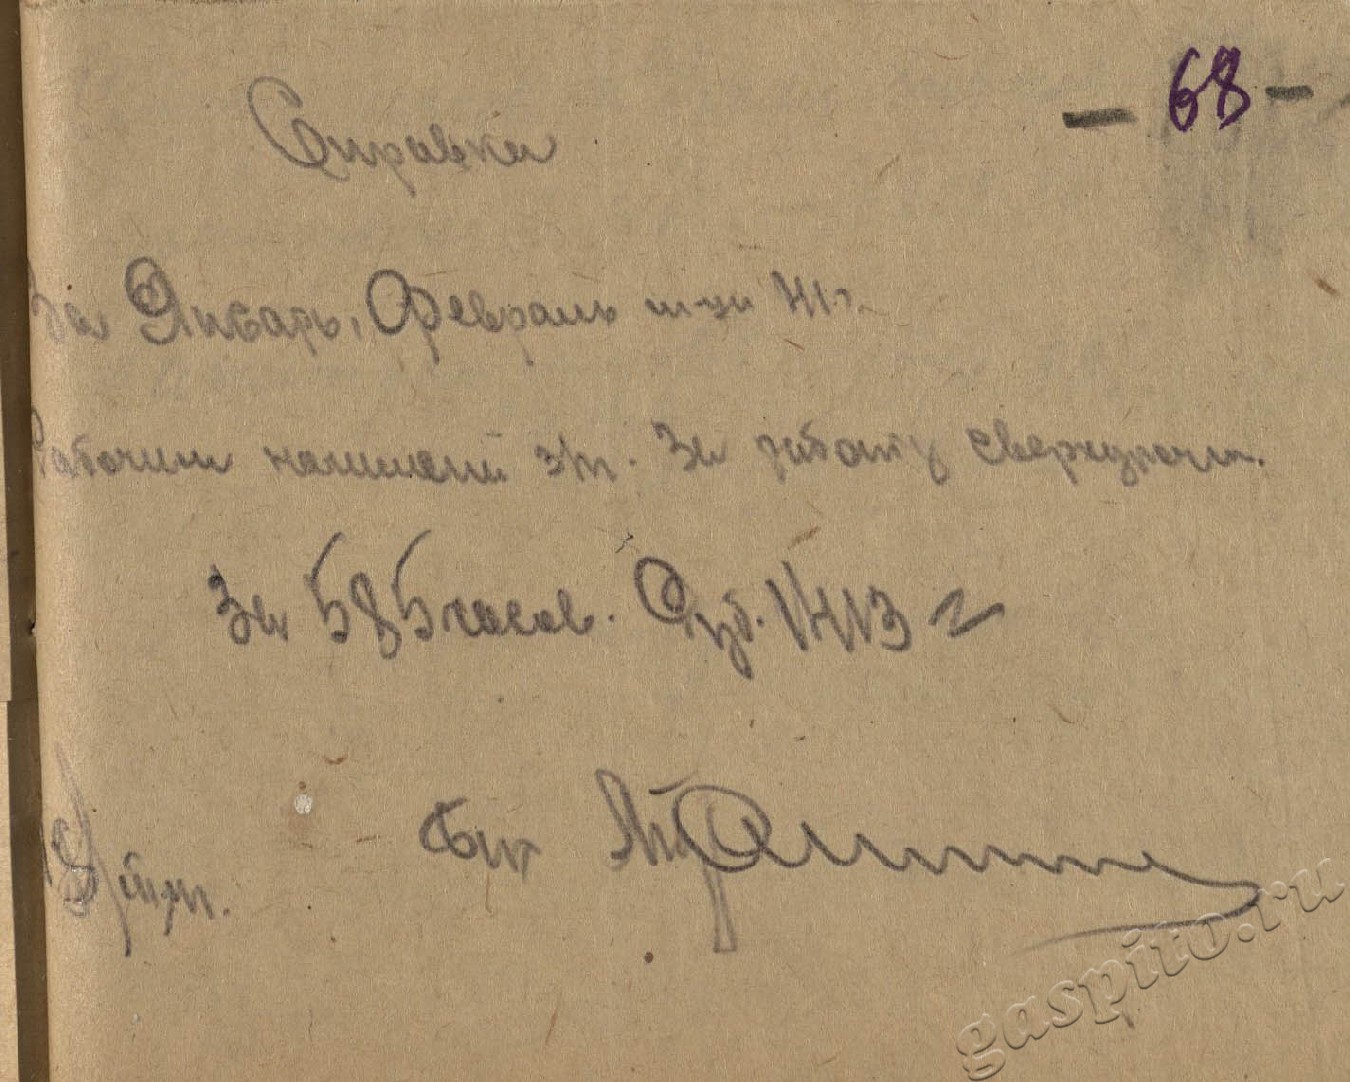 - 68 -
Справка
За Январь, Февраль м-цы 41 г.
Рабочим начислено з/п. За работу сверхурочн.
За 585 часов. Руб. 1413
Бух
gaspito.ru